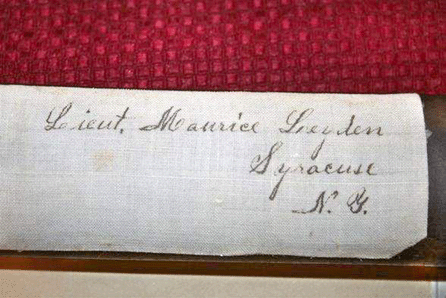 Lieut. Maurice Leyden
Syracuse
N. Y.